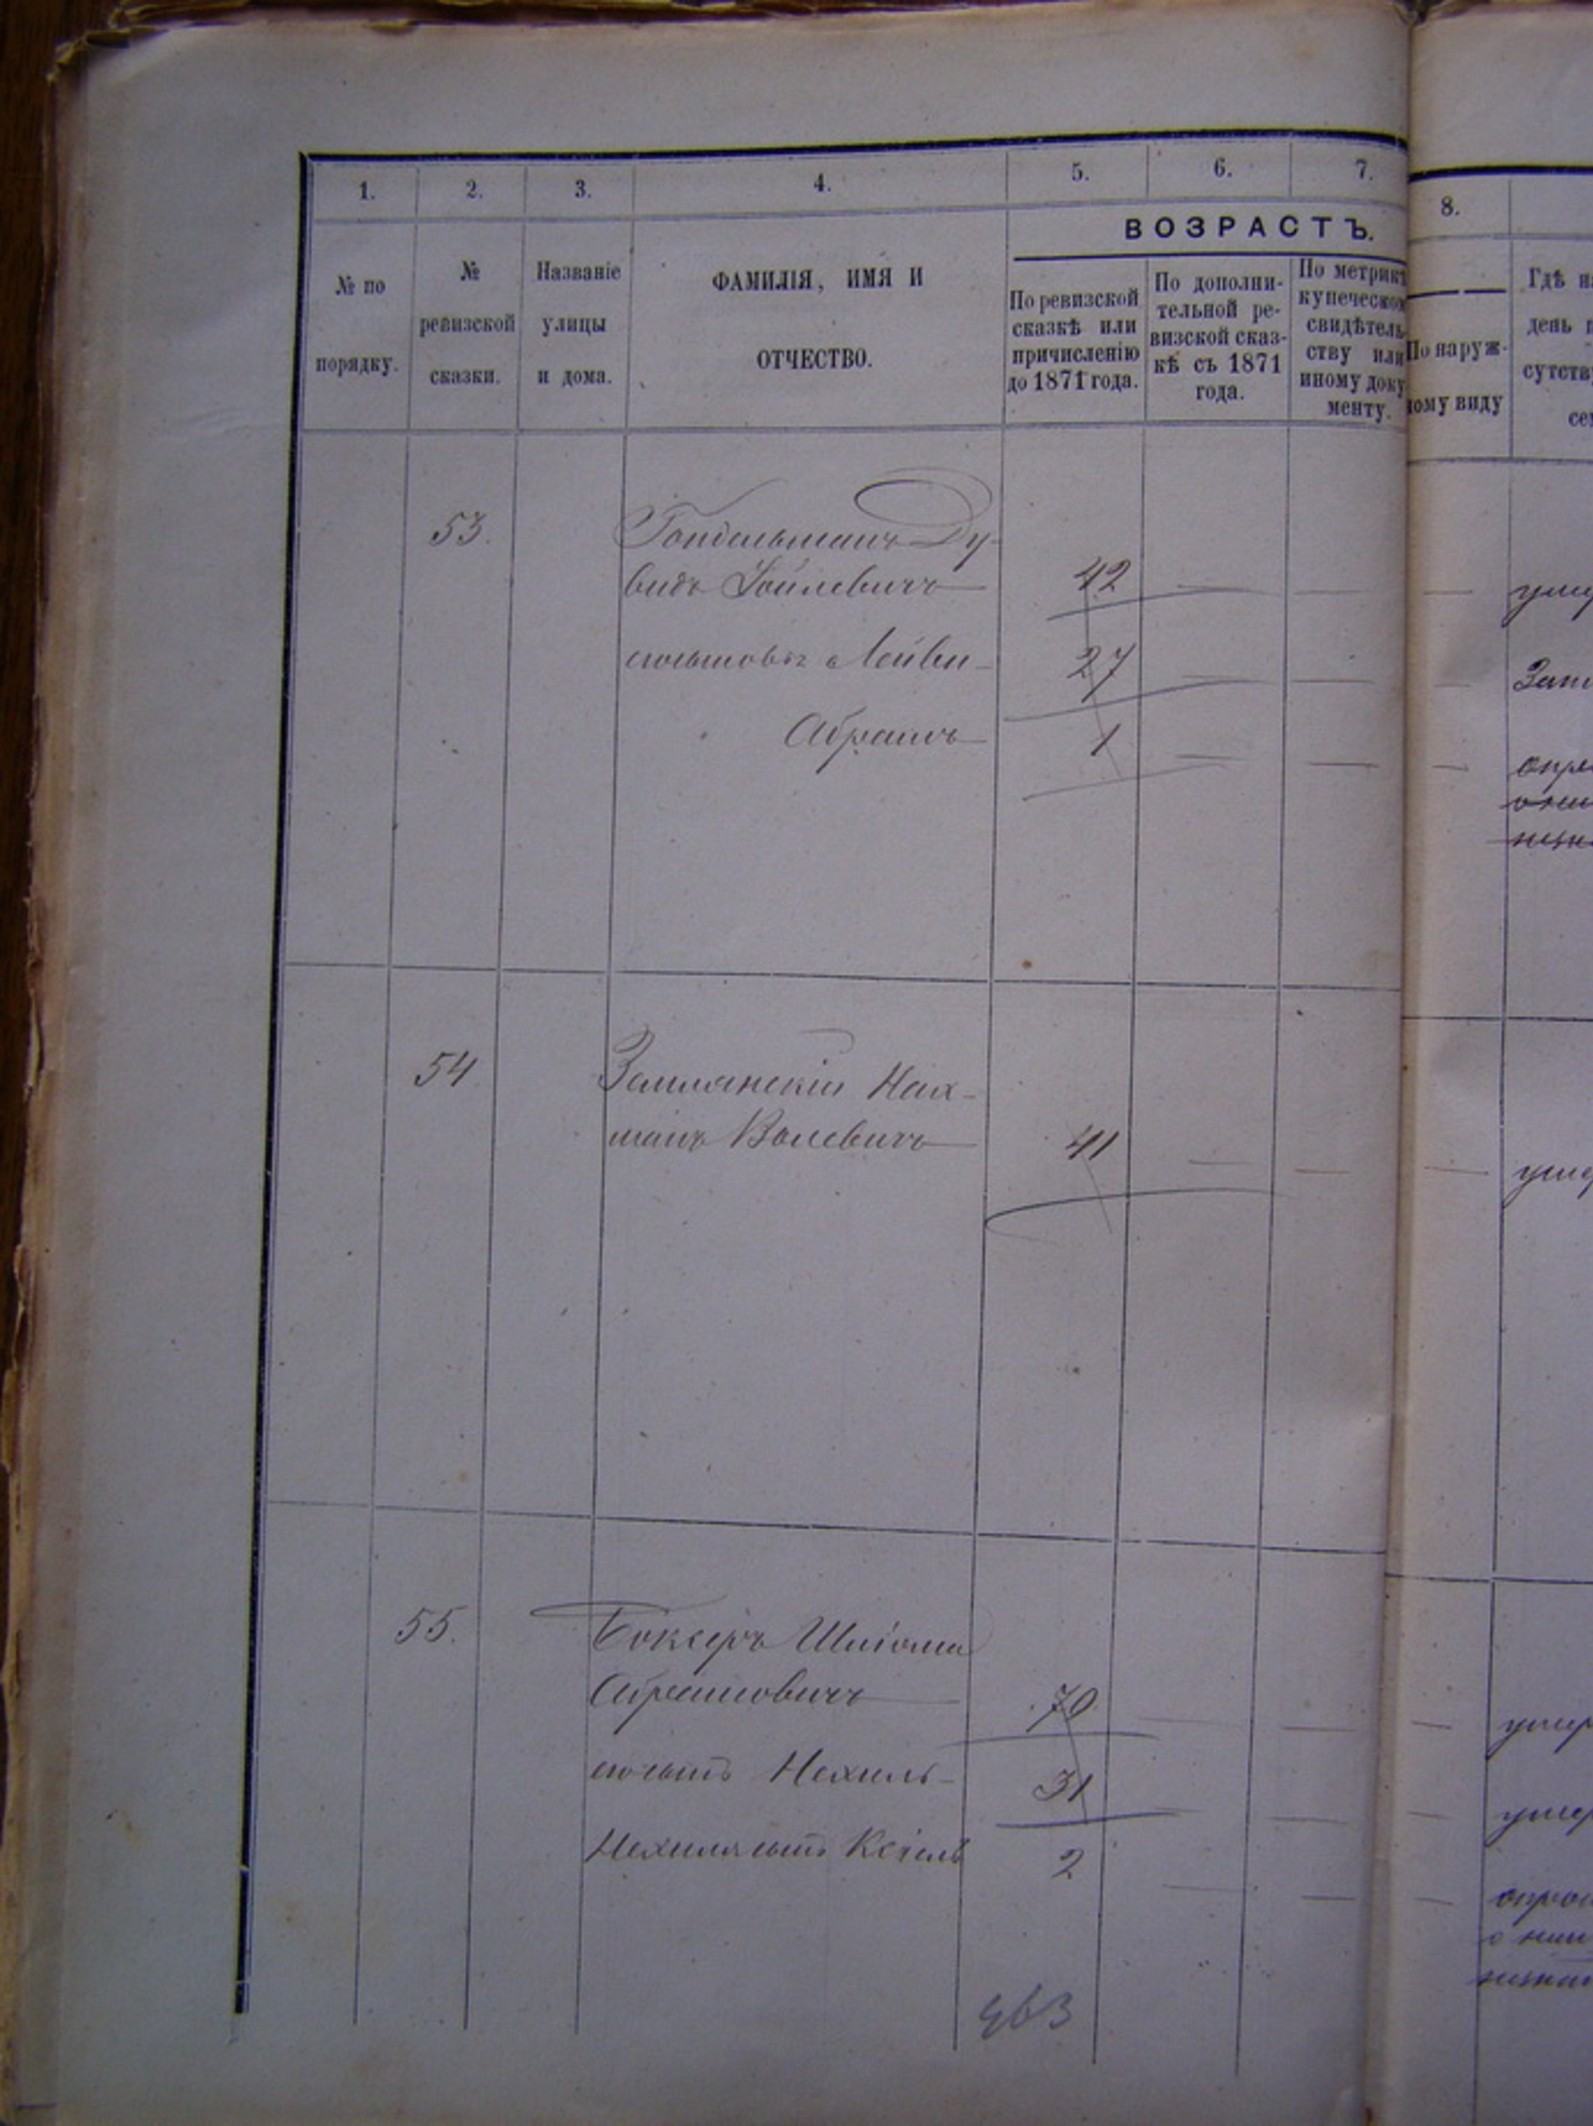 1. 2. 3. 4. 5. 6. 7. 8.
ВОЗРАСТЪ.
№ по
порядку.
№
ревизской
сказки.
Названіе
улицы
и дома.
ФАМИЛІЯ, ИМЯ И
ОТЧЕСТВО.
По ревизской
сказкѣ или
причисленію
до 1871 года.
По дополни-
тельной ре-
визской сказ-
кѣ съ 1871
года.
По метрикѣ
купеческом
свидѣтель-
ству или
иному доку
менту.
По наруж-
ному виду
Гдѣ н
день п
сутств
се
53. Гондельманъ Ду-
видъ Іойлевичъ 42 — — — уме
Лейви- 27 — — — Запи
Абрамъ 1 — — —
54 Землянскій Нах-
манъ Волевичъ 41 — — — уме
55. Боксеръ Шліома
Абрамовичъ 70 — — — умер
сынъ Нехиль- 31 — — — умер
Нехиля сынъ Кеіель 2 — — —
463